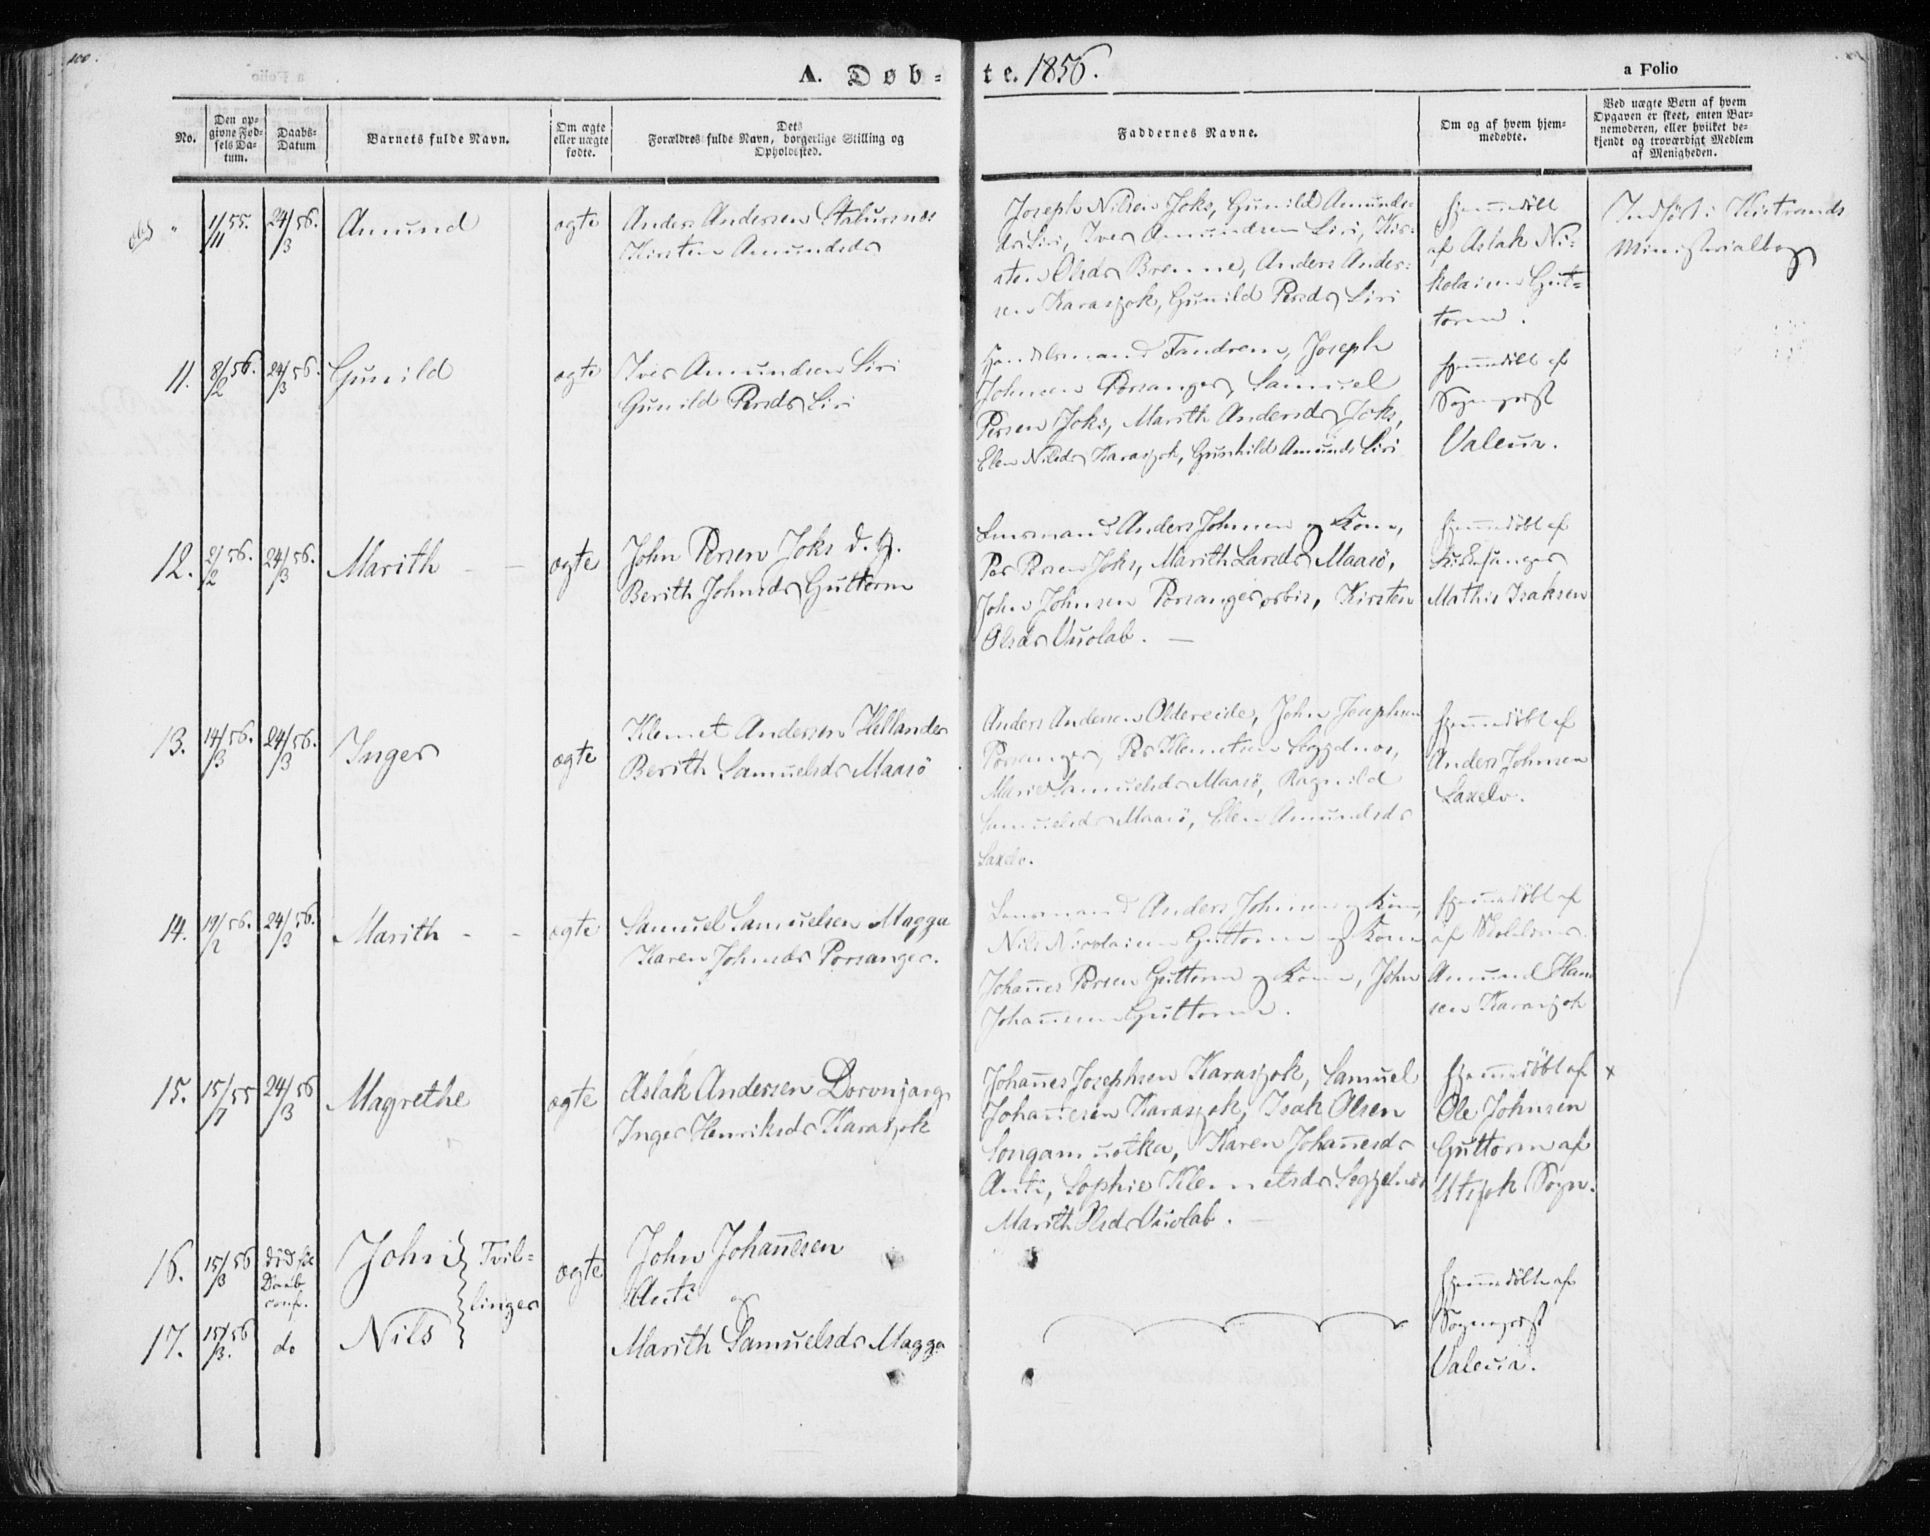 100.
A. Døb-
te. 1856.
a Folio
No.
Den op-
givne Fød-
sels Da-
tum.
Daabs-
Datum
Barnets fulde Navn.
Om ægte
eller uægte
fødte.
Dets
Forældres fulde Navn, borgerlige Stilling og
Opholdssted.
Faddernes Navne.
Om og af hvem hjem-
medøbte.
Ved uægte Børn af hvem
Opgaven er skeet, enten Bar-
nemoderen, eller hvilket be-
kjendt og troværdigt Medlem
af Menigheden.
" 1/11 55. 24/3 56. Amund ægte
Anders Andersen
Kirsten Amundsdr
Joseph Nilsen Joks, Gunild Amunds-
dr Siri, Iver Amundsen Siri, Kir-
sten Olsdr Brenne, Anders Ander-
sen Karasjok, Gunild Persdr Siri
Hjemmedöbt
af Aslak Ni-
kolaisen Gut-
torm.
Indført i Kistrands
Ministerialbog
11. 8/2 56. 24/3 56. Gunild ægte
Iver Amundsen Siri
Gunild Persdr Siri
Handelsmand Fandrem, Joseph
Johnsen Porsanger, Samuel
Persen Joks, Marith Andersdr Joks,
Elen Nilsdr Karasjok, Gunhild Amunds Siri
Hjemmedöbt af
Sognepræst
Valeur.
12. 2/2 56. 24/3 56. Marith - - ægte
John Persen Joks d. y.
Berith Johnsdr Guttorm
Lensmand Anders Johnsen og Kone,
Per Persen Joks, Marith Larsdr Maasö,
John Johnsen Porsanger, Kirsten
Olsdr Vuolab. —
Hjemmedöbt af
Kirkesanger
Mathis Isaksen
13. 14/3 56. 24/3 56. Inger ægte
Klemet Andersen Hellander
Berith Samuelsdr Maasö
Anders Andersen Oldereide, John Josephsen
Porsanger, Per Klemetsen
Marie Samuelsdr Maasö, Ragnild
Samuelsdr Maasö, Elen Amundsdr
Laxelv.
Hjemmedöbt af
Anders Johnsen
Laxelv.
14. 19/2 56. 24/3 56. Marith - - ægte
Samuel Samuelsen Magga
Karen Johnsdr Porsanger.
Lensmand Anders Johnsen og Kone,
Nils Nicolaisen Guttorm og Kone
Johannes Persen Guttorm og Kone, John
Johannesen Guttorm.
Hjemmedöbt af
af
Amund Han-
sen Karasjok
15. 15/7 55 24/3 56 Magrethe ægte
Aslak Andersen
Inger Henriksdr Karasjok
Johannes Josephsen Karasjok, Samuel
Johannesen Karasjok, Isak Olsen
Songamuotka, Karen Johannesdr
Anti, Sophie Klemetsdr
Marith Olsdr Vuolab. —
Hjemmedöbt af
Ole Johnsen
Guttorm af
Utsjok Sogn.
x
16. 15/3 56 död för
Daab
conf.
John } Tvil-
linger
ægte
John Johannesen
Anti og
17. 15/3 56 do Nils
Marith Samuelsdr Magga
Hjemmedöbte af
Sognepræst
Valeur.